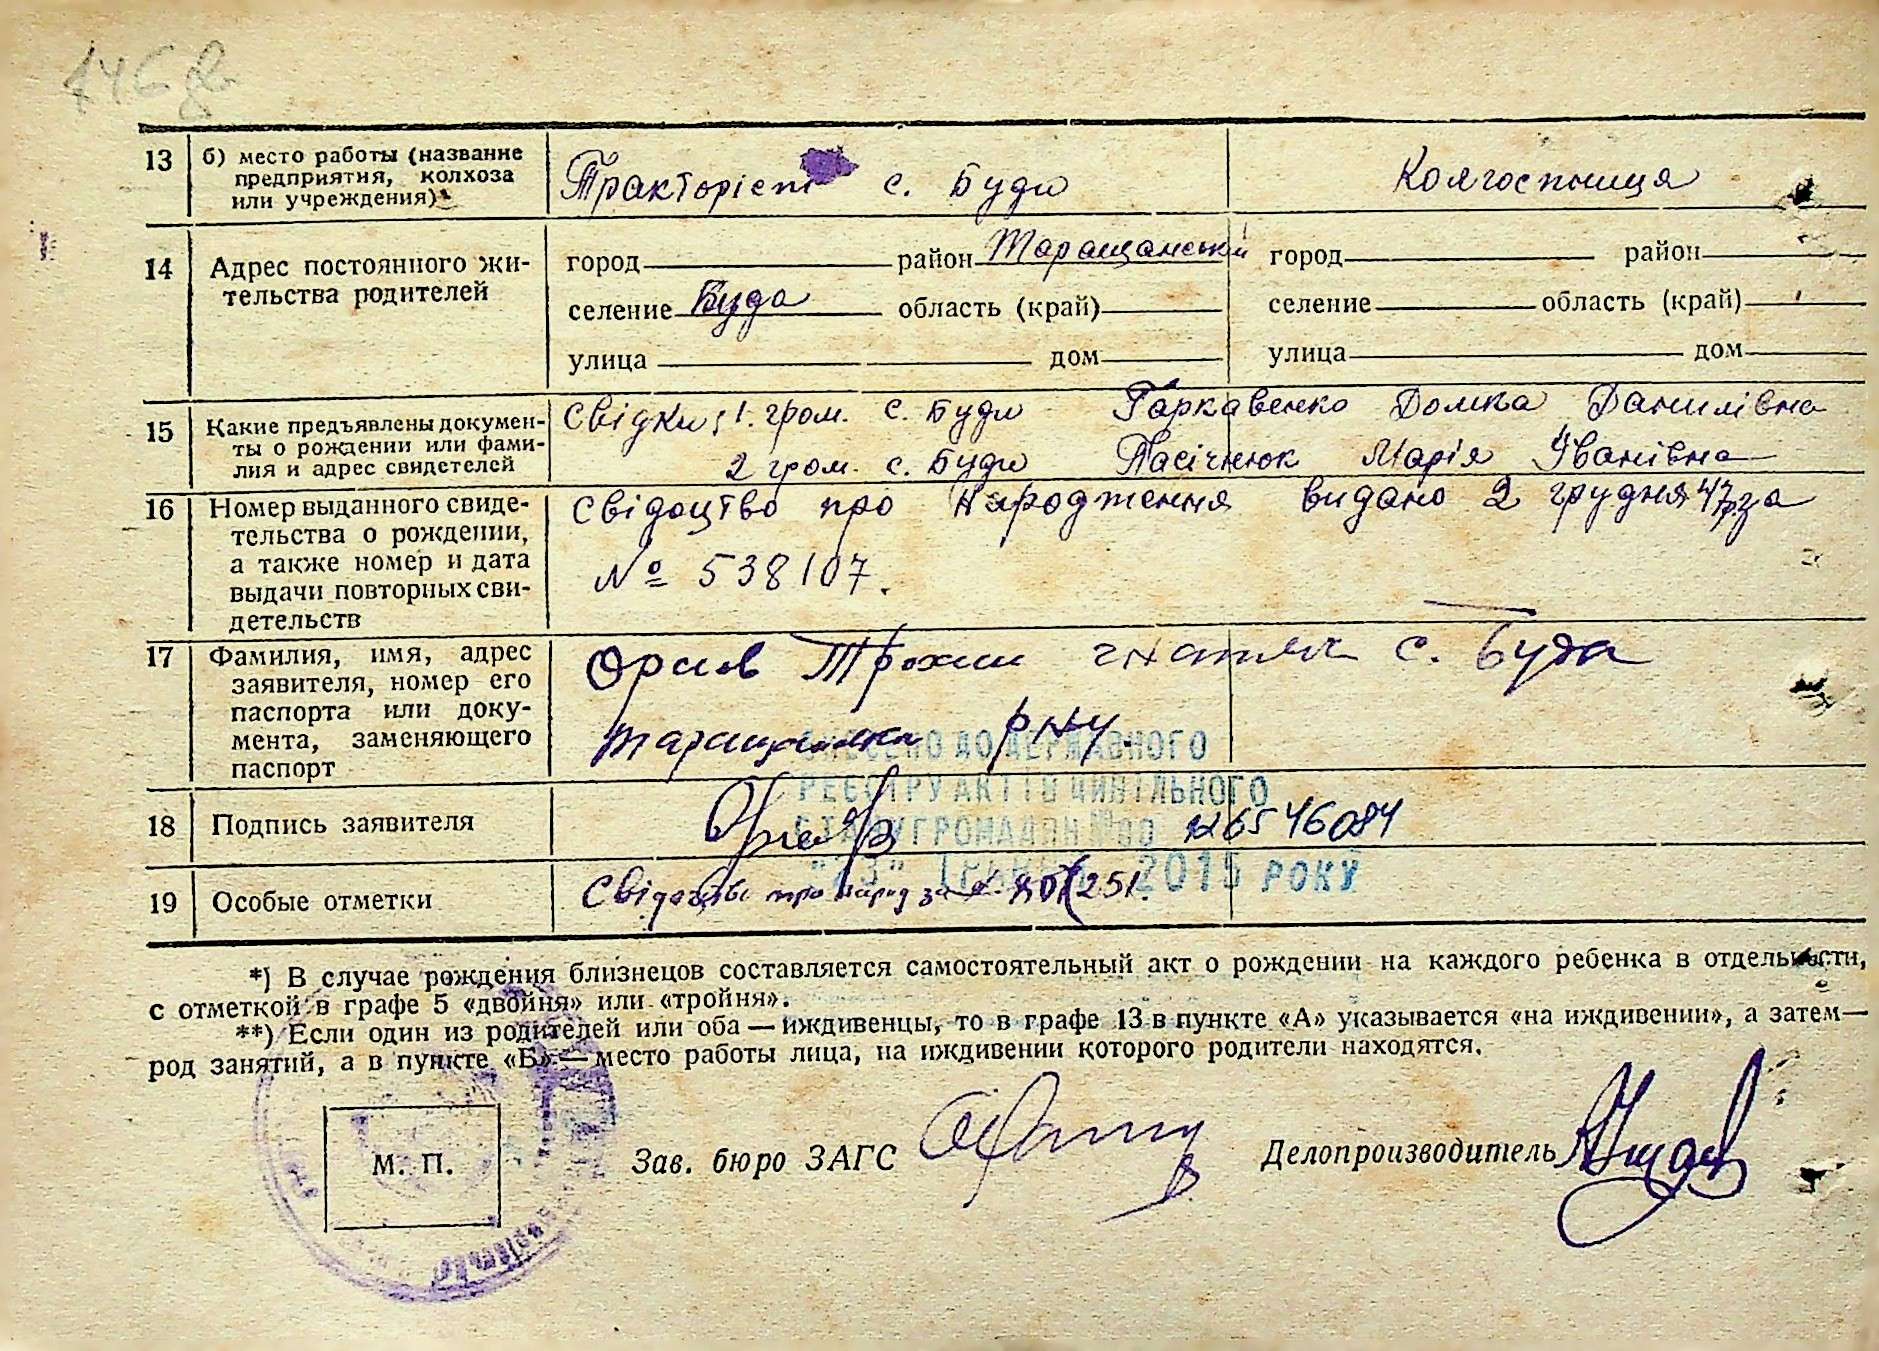 13 б) место работы (название
предприятия, колхоза
или учреждения)
Тракторіст с. Буди
Колгоспниця
14 Адрес постоянного жи-
тельства родителей
город район Таращанський
селение Буда область (край)
улица дом
город район
селение область (край)
улица дом
15 Какие предъявлены докумен-
ты о рождении или фами-
лия и адрес свидетелей
Свідки: 1. гром. с. Буди Гаркавенко Домка Данилівна
2 гром. с. Буди Пасічнюк Марія Іванівна
16 Номер выданного свиде-
тельства о рождении,
а также номер и дата
выдачи повторных сви-
детельств
Свідоцтво про народження видано 2 грудня 47р. за
№ 538107.
17 Фамилия, имя, адрес
заявителя, номер его
паспорта или доку-
мента, заменяющего
паспорт
Трохим с. Буда
18 Подпись заявителя
19 Особые отметки
Свідоцтво про народ за
ВНЕСЕНО ДО ДЕРЖАВНОГО
РЕЄСТРУ АКТІВ ЦИВІЛЬНОГО
СТАНУ ГРОМАДЯН №00 126546084
"23" ТРАВНЯ 2015 РОКУ
*) В случае рождения близнецов составляется самостоятельный акт о рождении на каждого ребенка в отдельности,
с отметкой в графе 5 «двойня» или «тройня».
**) Если один из родителей или оба — иждивенцы, то в графе 13 в пункте «А» указывается «на иждивении», а затем—
род занятий, а в пункте «Б» — место работы лица, на иждивении которого родители находятся.
М. П.
Зав. бюро ЗАГС
Делопроизводитель